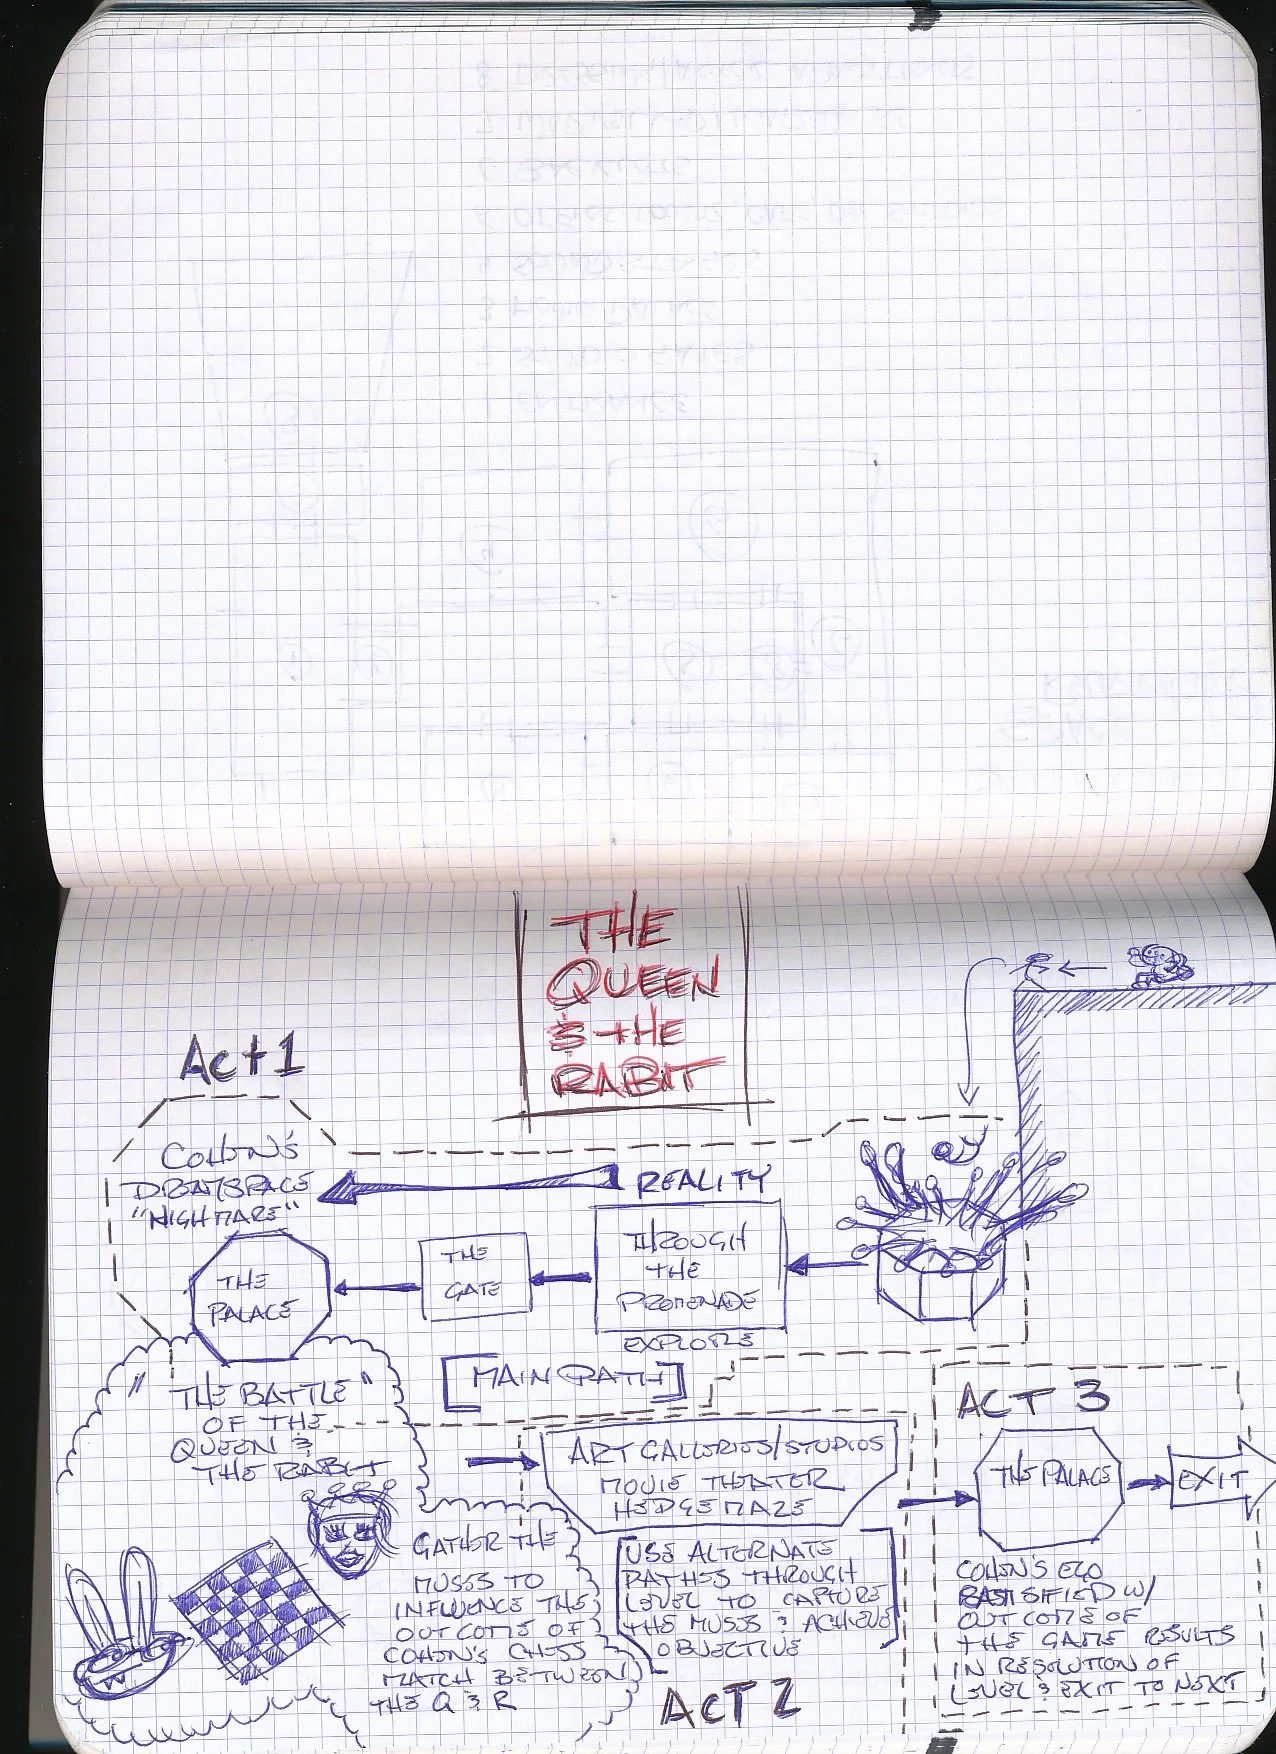 THE
QUEEN
& THE
RABIT
Act 1
COHEN'S
DREAMSPACE
"NIGHTMARE"
REALITY
THE
PALACE
THE
GATE
THROUGH
THE
PROMENADE
EXPLORE
[MAIN PATH]
"THE BATTLE"
OF THE
QUEEN &
THE RABIT
ART GALLERIES/STUDIOS
MOVIE THEATER
HEDGEMAZE
GATHER THE
MUSES TO
INFLUENCE THE
OUTCOME OF
COHEN'S CHESS
MATCH BETWEEN
THE Q & R
USE ALTERNATE
PATHS THROUGH
LEVEL TO CAPTURE
THE MUSES & ACHIEVE
OBJECTIVE
ACT 2
ACT 3
THE PALACE
EXIT
COHEN'S EGO
SATISIFIED W/
OUTCOME OF
THE GAME RESULTS
IN RESOLUTION OF
LEVEL & EXIT TO NEXT